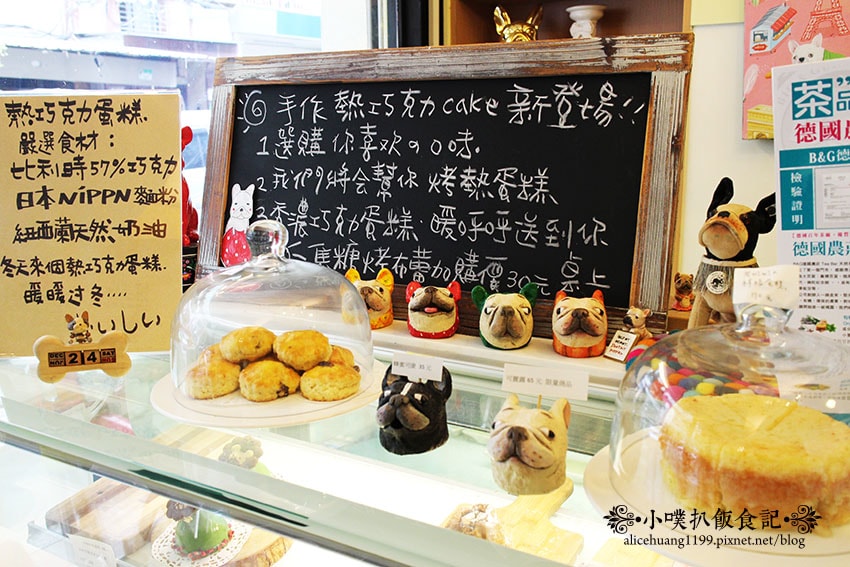 熱巧克力蛋糕.
嚴選食材：
比利時57%巧克力
日本NiPPN麵粉
紐西蘭天然奶油
冬天來個熱巧克力蛋糕.
暖暖过冬····
おいしい
24
手作 熱巧克力 cake 新登場!!
1.選購你喜欢の口味.
2.我們將会幫你 烤熱蛋糕
3.香濃巧克力蛋糕.暖呼呼送到你
桌上
焦糖烤布蕾加購價30元
蜂蜜司康 35元
可麗露 65元 限量商品
茶
德國農
B&G德
檢驗證明
德國農
小噗扒飯食記
alicehuang1199.pixnet.net/blog